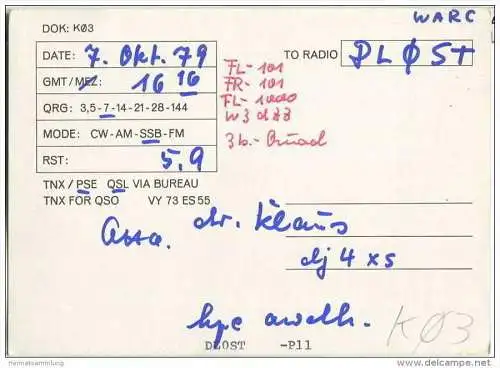 WARC
DOK: KØ3
DATE: 7. Okt. 79
TO RADIO DLØST
GMT/MEZ: 16 16
QRG: 3,5-7-14-21-28-144
MODE: CW-AM-SSB-FM
RST: 5.9
FL-101
FR-101
FL-1000
W3dzz
3b.-
TNX / PSE QSL VIA BUREAU
TNX FOR QSO VY 73 ES 55
dr. Klaus
dj4xs
hpe awdh.
KØ3
DL0ST -P11
Heimatsammlung
delcampe.net